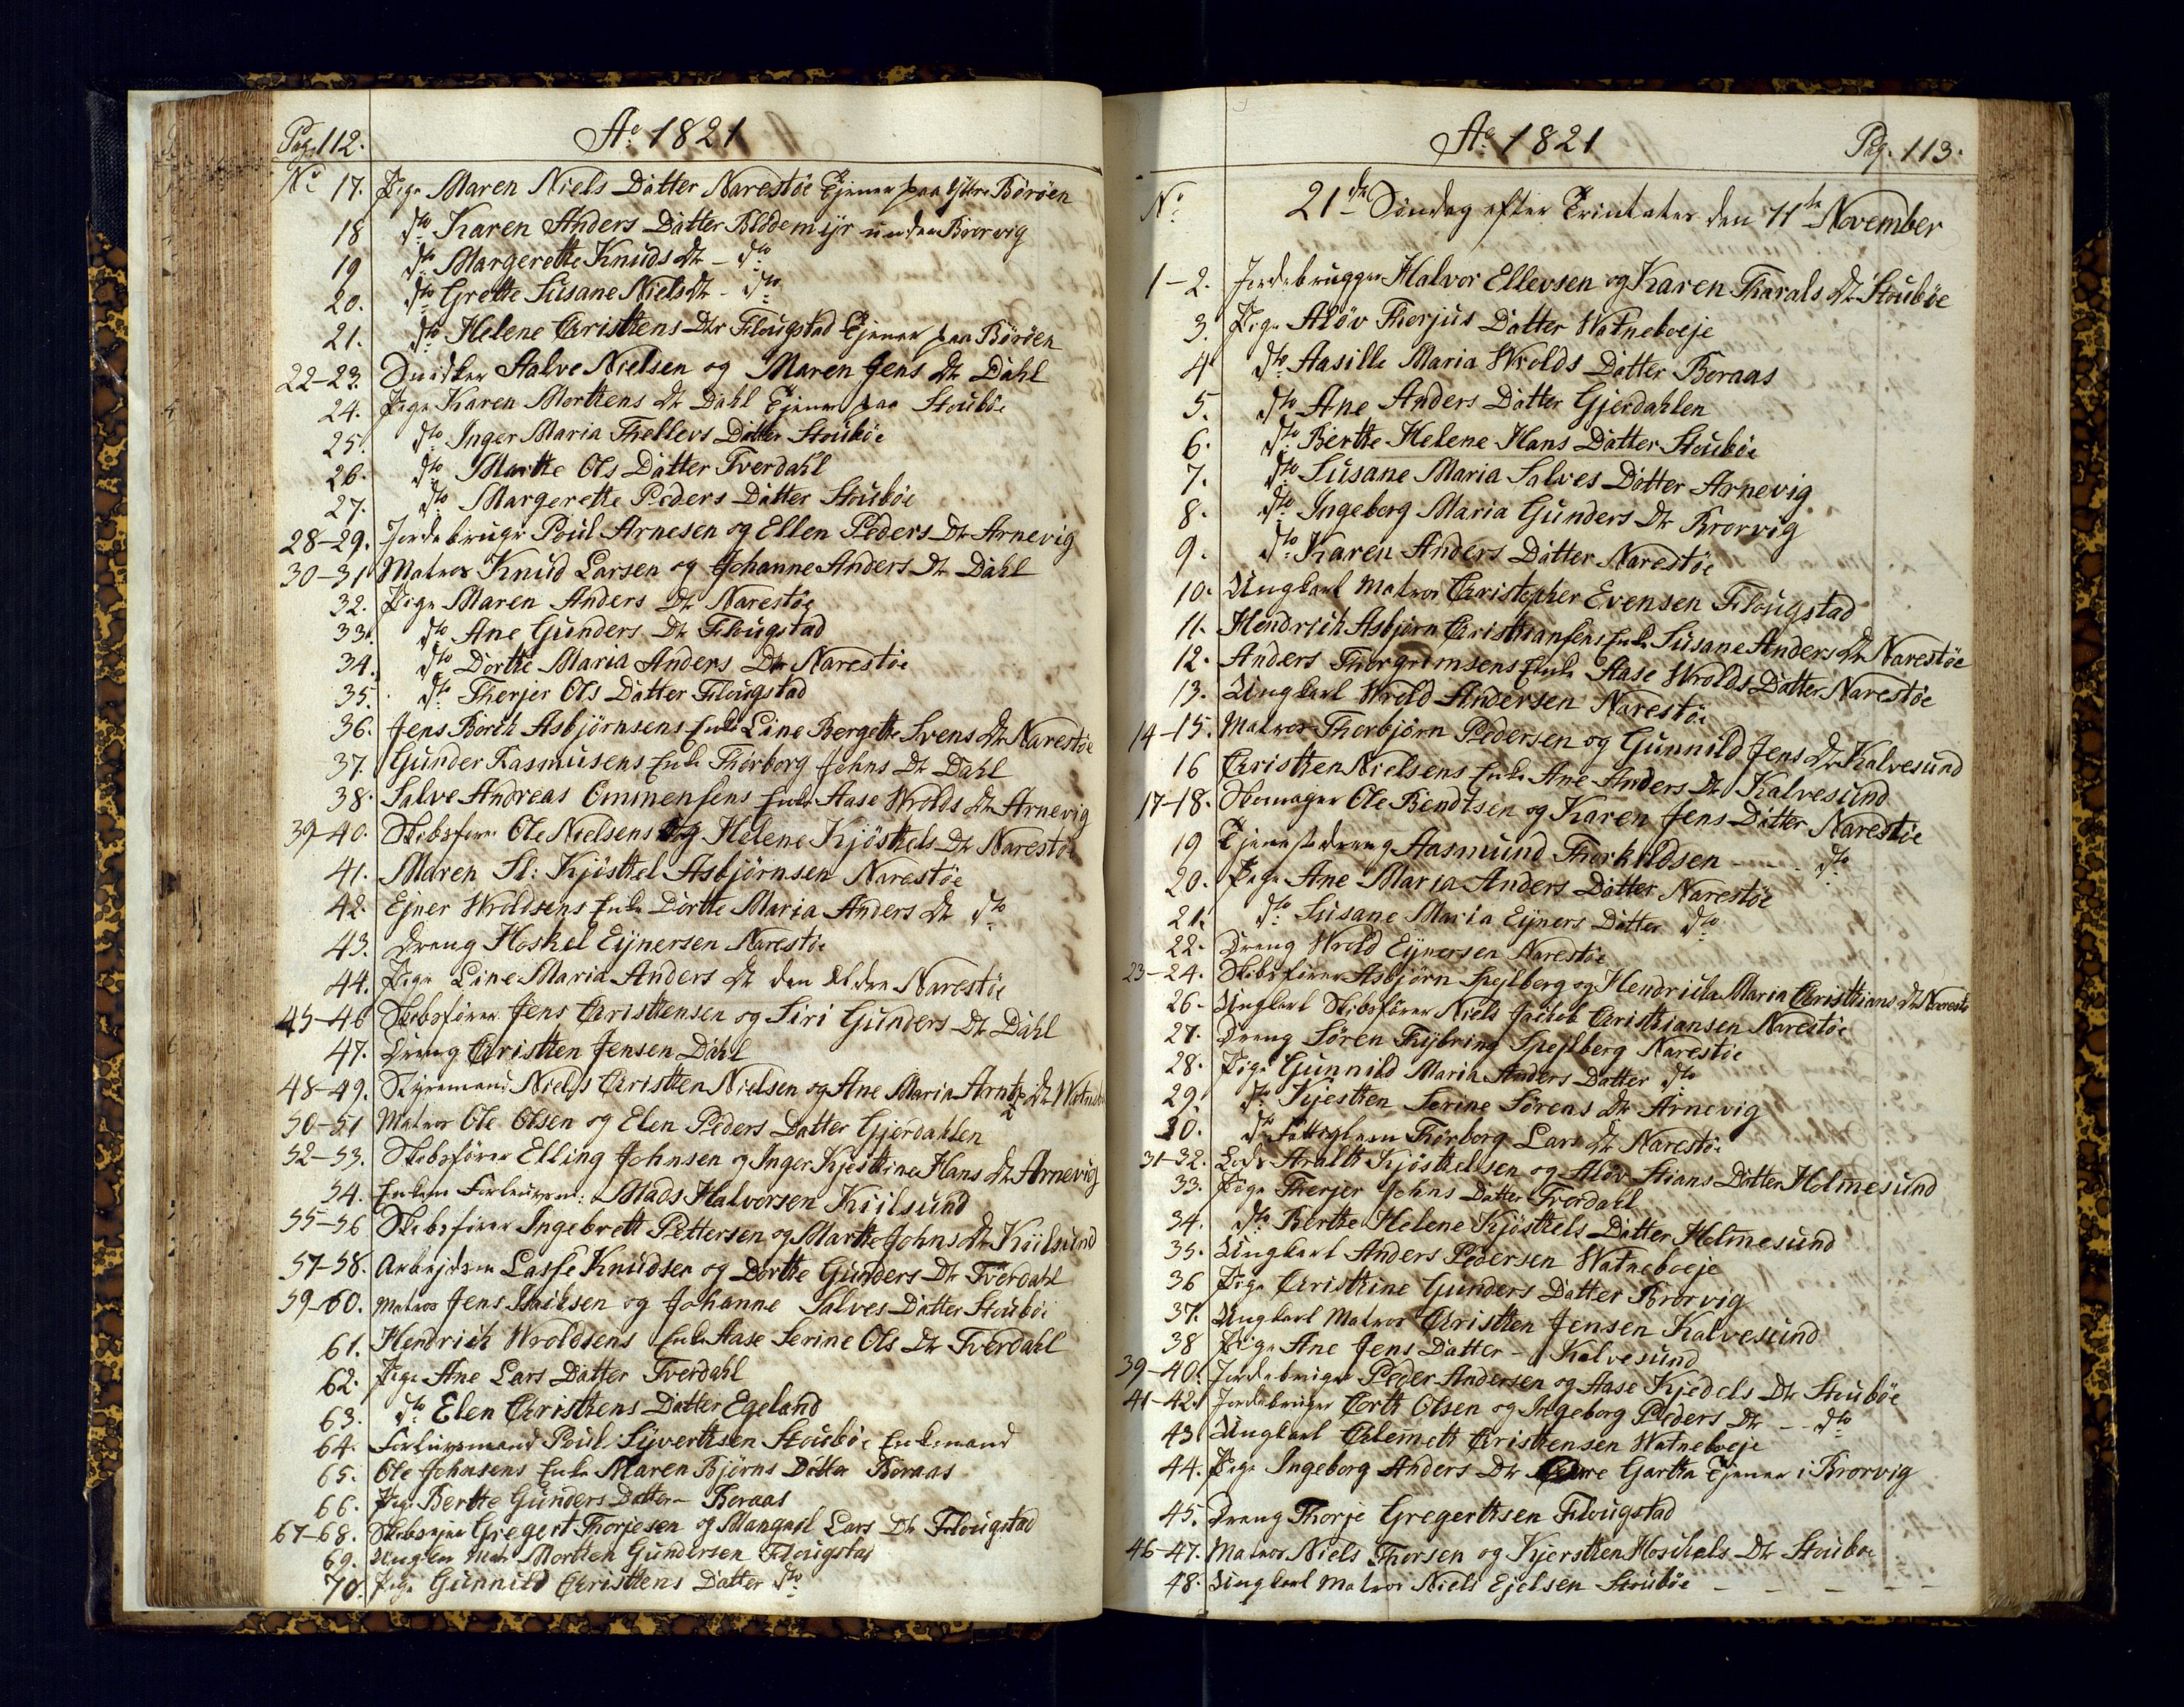 Pag. 112.
Ao 1821
No 17. Pige Maren Niels Datter Narestöe Tjener paa Ÿttre Böröen
18 dto Karen Anders Datter Bloddemÿr under Brorvig
19 dto Margerethe Knuds Dtr - dto
20. dto Grethe Susane Niels dtr - dto
21. dto Helene Christhens Dtr Flougstad Tjener paa Böröen
22-23. Snidker Aalve Nielsen og Maren Jens Dtr Dahl
24. Pige Karen Morthens Dtr Dahl Tjener paa Stouböe
25. dto Inger Maria Thellevs Datter Stouböe
26. dto Marthe Ols Datter Tverdahl
27. dto Margerethe Peders Datter Stouböe
28-29. Jordebruger Poul Arnesen og Ellen Peders Dtr Arnevig
30-31 Matros Knud Larsen og Johanne Anders Dtr Dahl
32. Pige Maren Anders Dtr Narestöe
33. dto Ane Gunders Dtr Flougstad
34. dto Dorthe Maria Anders Dtr Narestöe
35. dto Therjer Ols Datter Flougstad
36. Jens Borth Asbjörnsens Enke Line Bergethe Svens Dtr Narestöe
37. Gunder Rasmusens Enke Thorborg Johns Dtr Dahl
38. Salve Andreas Ommensens Enke Aase Wrolds Dtr Arnevig
39-40. Skibsförer Ole Nielsens og Helene Kjösthels Dtr Narestöe
41. Maren Sl: Kjösthel Asbjörnsen Narestöe
42. Ejner Wroldsens Enke Dorthe Maria Anders Dtr dto
43. Dreng Hoskel Eÿnersen Narestöe
44. Pige Line Maria Anders Dtr den Eldre Narestöe
45-46 Skibsförer Jens Christhensen og Siri Gunders Dtr Dahl
47. Dreng Christhen Jensen Dahl
48-49. Stÿremand Niels Christhen Nielsen og Ane Maria Arntz Dtr
50-51 Matros Ole Olsen og Elen Peders Datter Gjerdahlen
52-53. Skibsförer Elling Johnsen og Inger Kjesthine Hans Dtr Arnevig
54. Enkem Forleursm: Mads Halvorsen Kiilsund
55-56 Skibsförer Ingebrett Pettersen og Marthe Johns Dtr Kiilsund
57-58. Arbejdsm Lasse Knudsen og Dorthe Gunders Dtr Tverdahl
59-60. Matros Jens Isaiksen og Johanne Salves Datter Stoubö:
61. Hendrich Wroldsens Enke Aase Serine Ols Dtr Tverdahl
62. Pige Ane Lars Datter Tverdahl
63. dto Elen Christhens Datter Egeland
64. Forleursmand Poul Sÿverthsen Stoubö: Enkemand
65. Ole Johnsens Enke Maren Björns Datter Boraas
66. Pige Berthe Gunders Datter - Boraas
67-68. Skibsejer Gregert Thorjesen og Mangnil Lars Dtr Flougstad
69. Ungkar Matr Morthen Gundersen Flougstad
70. Pige Gunnild Christhens Datter dto
Ao 1821
Pag. 113.
No 21de Söndag efter Trinitates den 11te November
1-2. Jordebrugger Halvor Ellevsen og Karen Tharals Dtr Stoubøe
3. Pige Alöv Therjus Datter Watneboeje
4 dto Aasille Maria Wrolds Datter Boraas
5. dto Ane Anders Datter Gjerdahlen
6. dto Berthe Helene Hans Datter Stouböe
7. dto Susane Maria Salves Datter Arnevig
8. dto Ingeborg Maria Gunders Dtr Brorvig
9. dto Karen Anders Datter Narestöe
10. Ungkarl Matros Christopher Evensen Flougstad
11. Hendrich Asbjørn Christhiansens Enke Susane Anders Dtr Narestöe
12. Anders Thorgrimsens Enke Aase Wrolds Datter Narestöe
13. Ungkarl Wrold Andersen Narestöe
14-15. Matros Thorbjörn Pedersen og Gunnild Jens Dtr Kalvesund
16 Christhen Nielsens Enke Ane Anders Dtr Kalvesund
17-18. Skomager Ole Bendtsen og Karen Jens Datter Narestöe
19 Tjenestedreng Aasmund Thorkildsen - dto
20. Pige Ane Maria Anders Datter Narestöe
21. dto Susane Maria Eÿners Datter dto
22. Dreng Wrold Eÿnersen Narestöe
23-24. Skibsförer Asbjörn Spejlberg og Hendricha Maria Christhians Dtr Narestö
26. Ungkarl Skibsförer Niels Jachob Christhiansen Narestöe
27. Dreng Sören Thÿbring Spejlberg Narestöe
28. Pige Gunnild Maria Anders Datter dto
29. dto Kjesthen Serine Sörens Dtr Arnevig
30. dto Fattiglem Thorborg Lars Dtr Narestöe
31-32. Lods Aralth Kjösthelsen og Alöv Stians Datter Holmesund
33. Pige Therjer Johns Datter Tverdahl
34. dto Berthe Helene Kjösthels Datter Holmesund
35. Ungkarl Anders Pedersen Watneboeje
36 Pige Christhine Gunders Datter Brorvig
37. Ungkarl Matros Christhen Jensen Kalvesund
38 Pige Ane Jens Datter - Kalvesund
39-40. Jordebruger Peder Andersen og Aase Kjedels Dtr Stouböe
41-42. Jordebruger Corth Olsen og Ingeborg Peders Dtr - dto
43 Ungkarl Clemett Christhensen Watneboeje
44. Pige Ingeborg Anders Dtr Gartha Tjener i Brorvig
45. Dreng Thorje Gregerthsen Flougstad
46-47. Matros Niels Thorsen og Kjersthen Hoschels Dtr Stouböe
48. Ungkarl Matros Niels Ejelsen Stouböe - - - - -